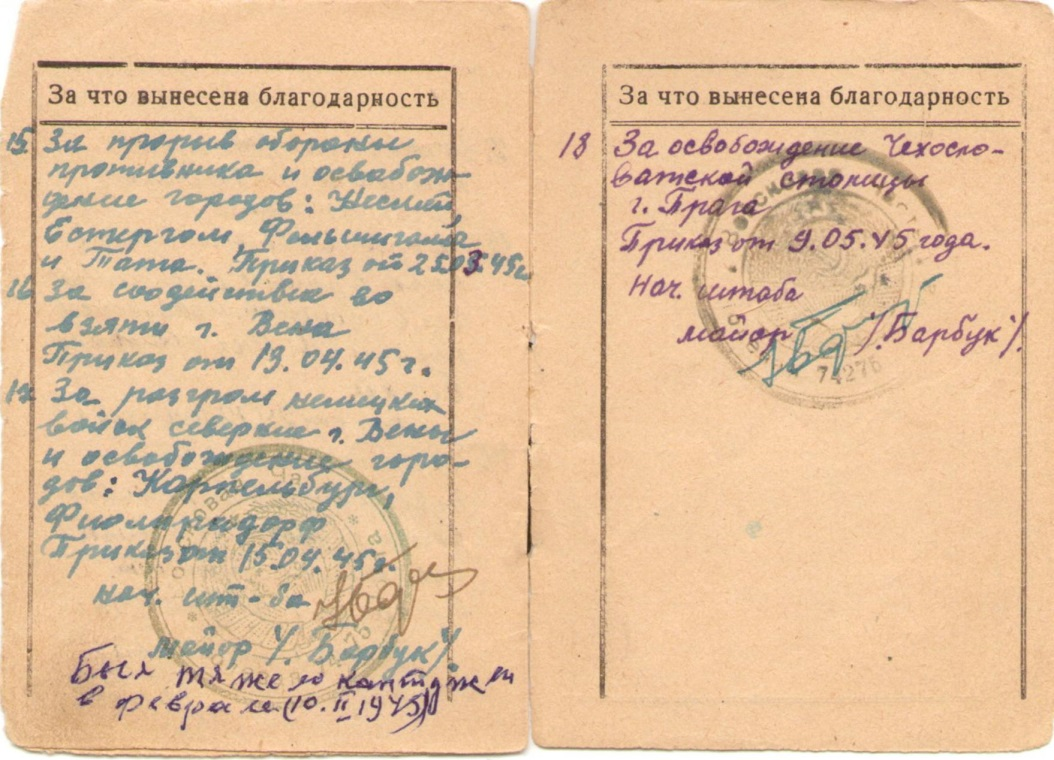 За что вынесена благодарность
15. За прорыв обороны
противника и освобож-
дение городов: Несмей,
Естергом, Фельшигалла
и Тата. Приказ от 25.03.45г.
16. За содействие во
взяти г. Вена
Приказ от 13.04.45г.
17. За разгром немецких
войск севернее г. Вены
и освобождение горо-
дов: Корнельбург,
Флоридсдорф
Приказ от 15.04.45г.
нач. шт-ба
майор /. Барбук /
Был тяжело контужен
в феврале (10.II 1945)
За что вынесена благодарность
18 За освобождение Чехосло-
ватской столицы
г. Прага
Приказ от 9.05.45 года.
Нач. штаба
майор /Барбук/.
74276